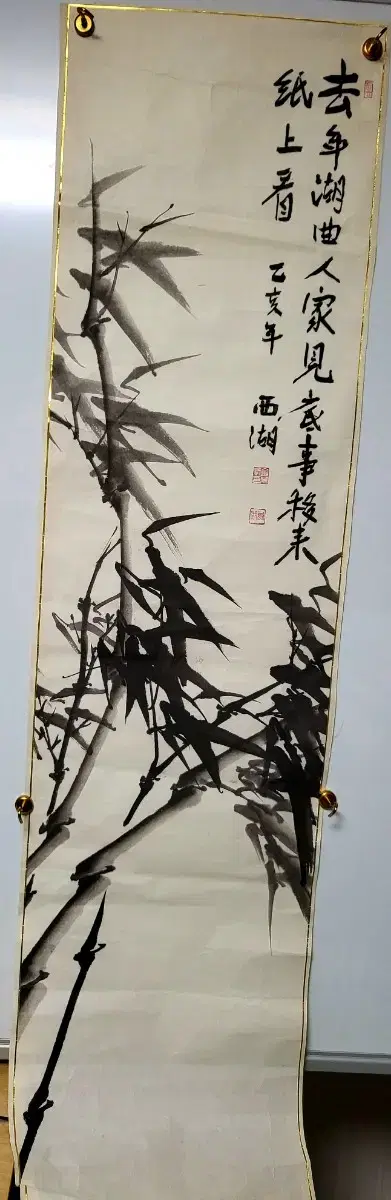 去年湖曲人家見歲事移来
纸上看
乙亥年
西湖